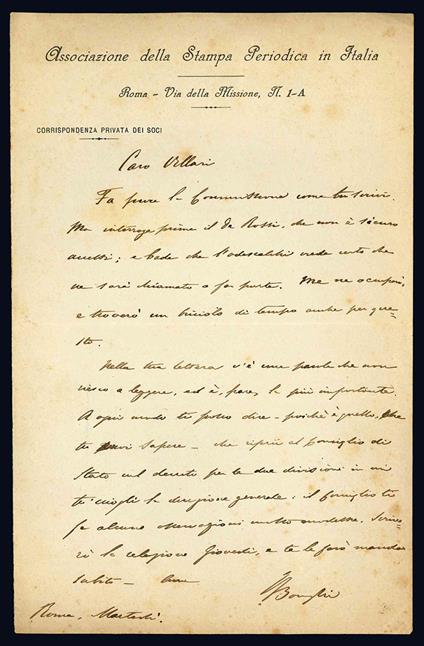 Associazione della Stampa Periodica in Italia
Roma - Via della Missione, N. 1-A
CORRISPONDENZA PRIVATA DEI SOCI
Caro Villari
Fa pure la Commissione come tu scrivi.
Ma interroga prima il De Rossi, che non è sicuro
accetti; e bada che l'Odescalchi crede certo che
ne sarà chiamato a far parte. Me ne occuperò,
e troverò un briciolo di tempo anche per que-
sto.
Nella tua lettera c'è una parola che non
riesco a leggere, ed è, pare, la più importante.
A ogni modo ti posso dire - poichè è quello, che
tu vuoi sapere - che riferii al Consiglio di
Stato sul decreto per le due divisioni in cui
tu sciogli la direzione generale: il Consiglio ti
fa alcune osservazioni molto modeste. Scrive-
rò la relazione Giovedì, e te la farò mandar
subito -
Bonghi
Roma, Martedì.